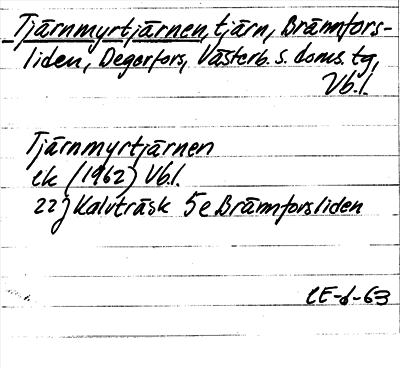 Tjärnmyrtjärnen, tjärn, Brännfors-
liden, Degerfors, Västerb. s. doms. tg,
Vb.l.
Tjärnmyrtjärnen
ek (1962) Vb.l.
22J Kalvträsk 5e Brännforsliden
CE-6-63